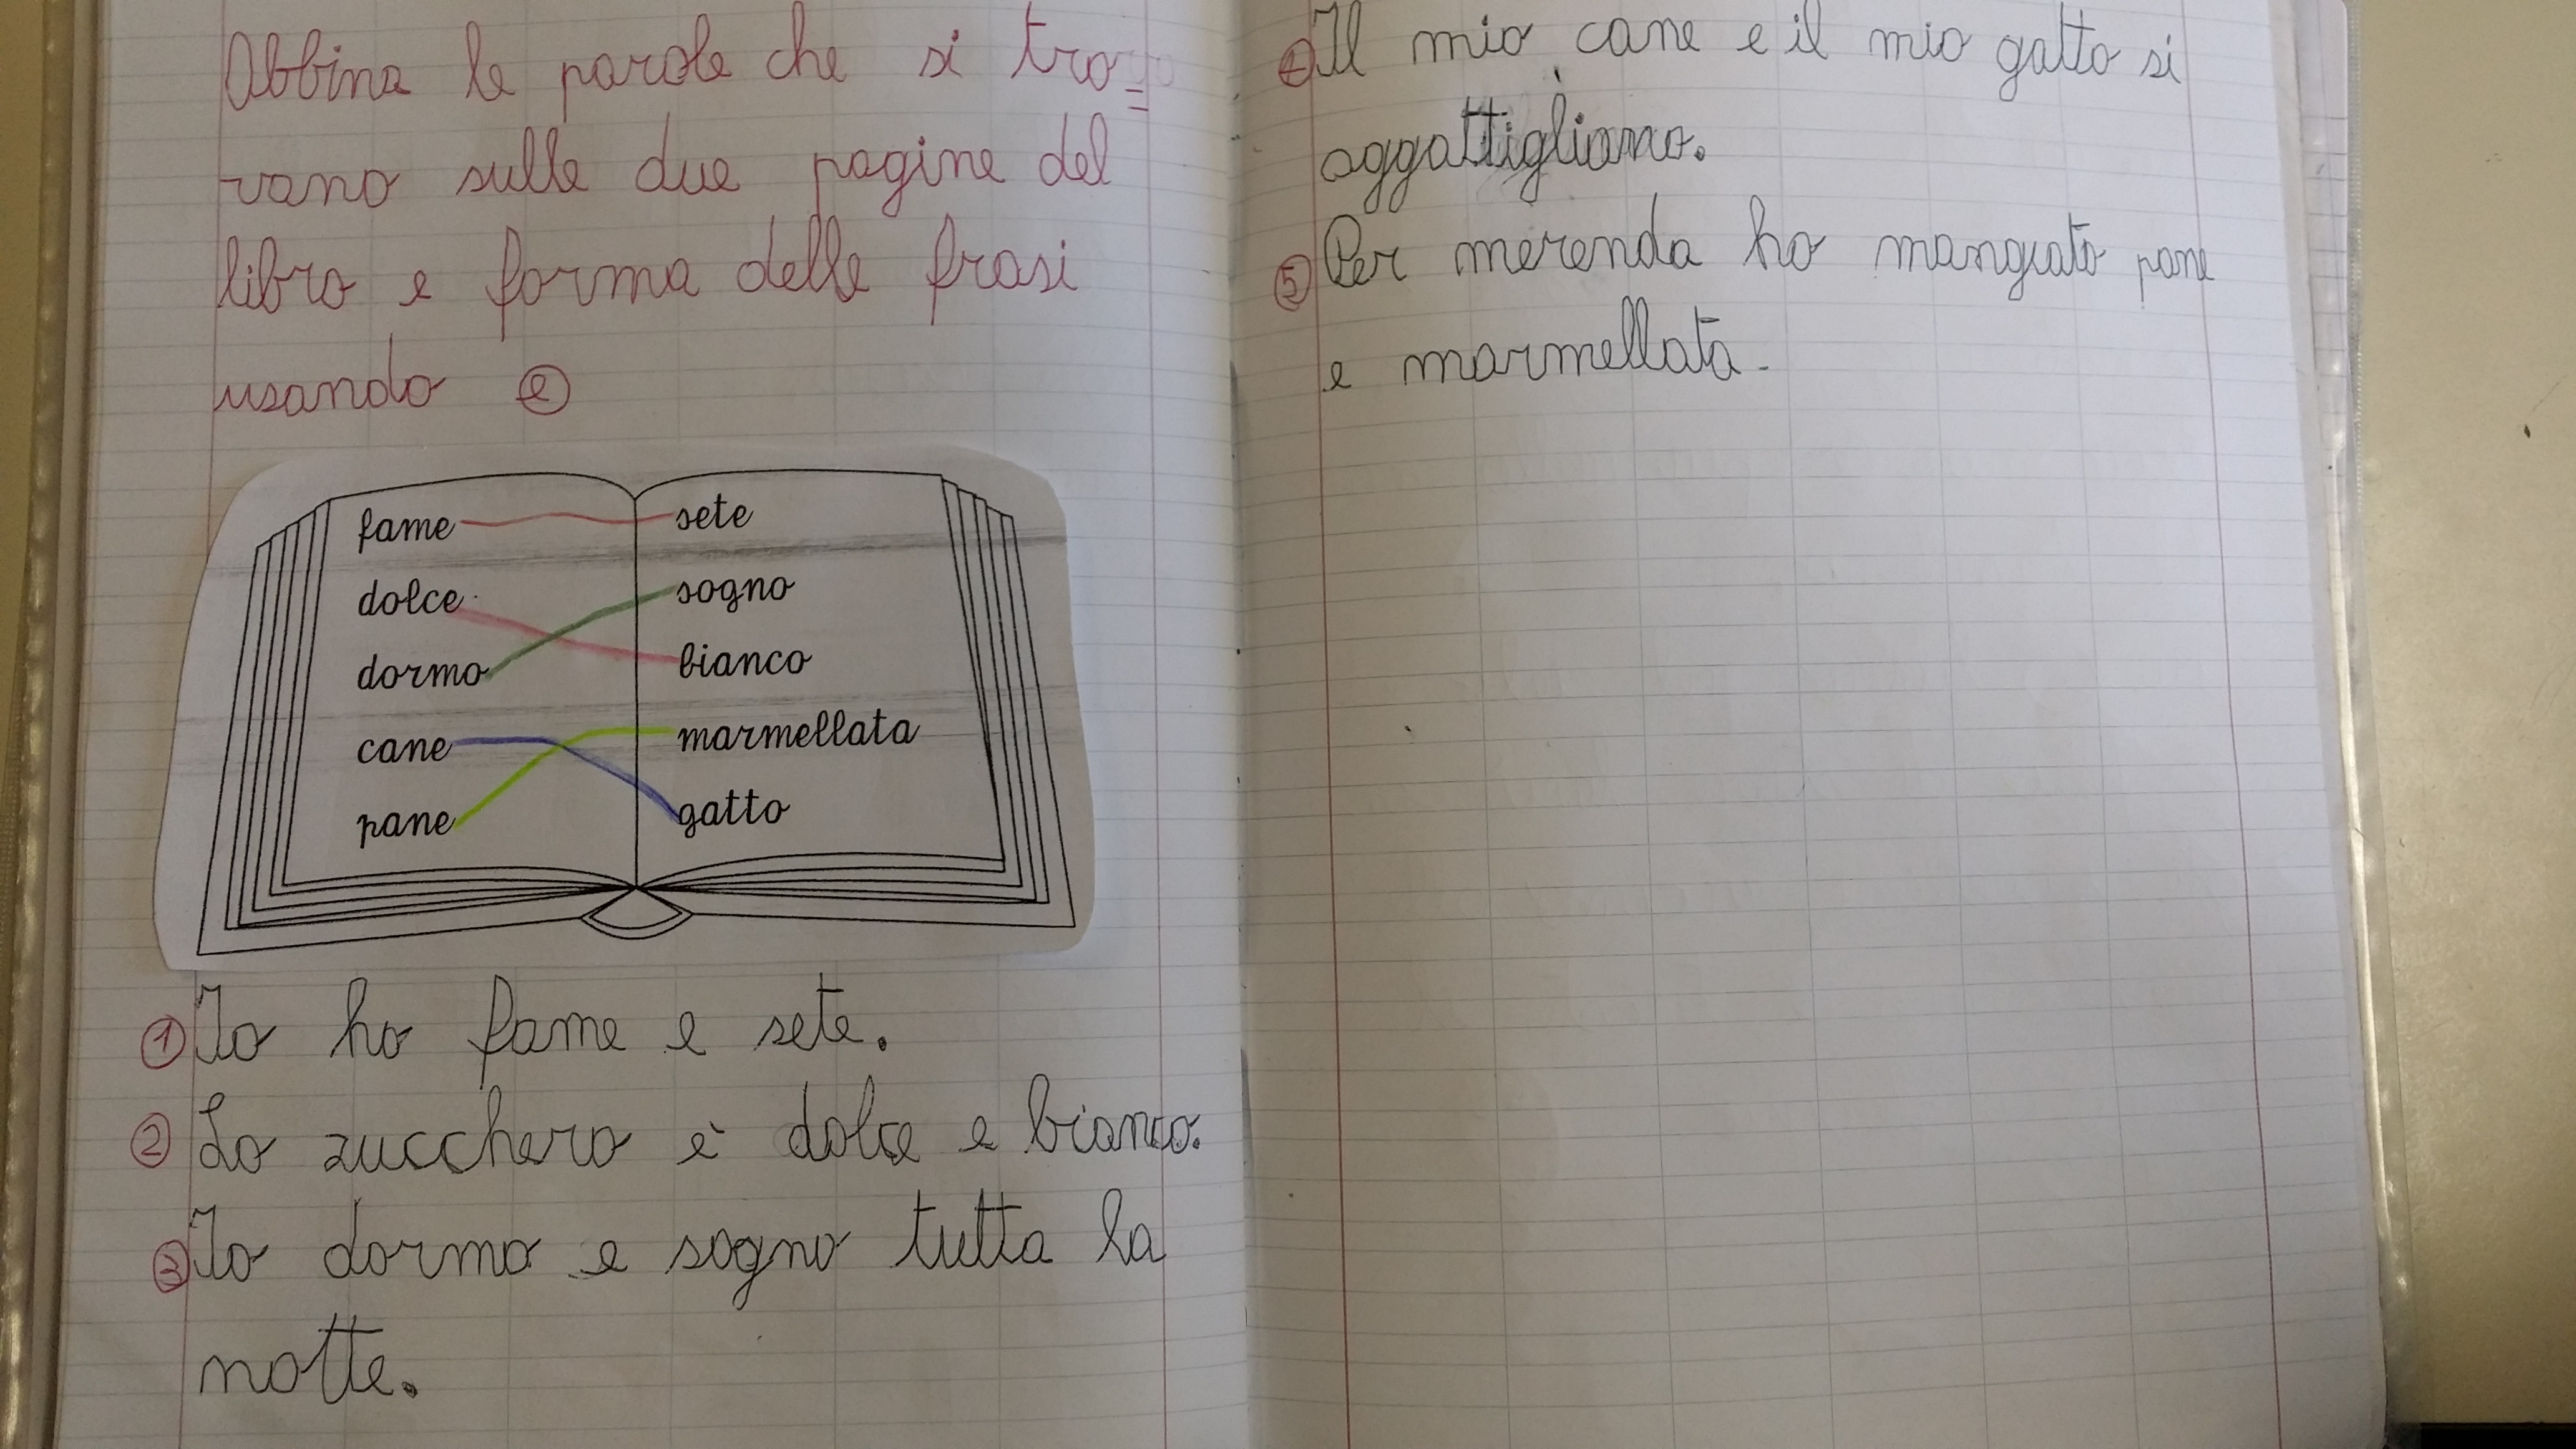 Abbina le parole che si tro=
vano sulle due pagine del
libro e forma delle frasi
usando e
fame sete
dolce sogno
dormo bianco
cane marmellata
pane gatto
1 Io ho fame e sete.
2 Lo zucchero è dolce e bianco.
3 Io dormo e sogno tutta la
notte.
4 Il mio cane e il mio gatto si
aggattigliano.
5 Per merenda ho mangiato pane
e marmellata.